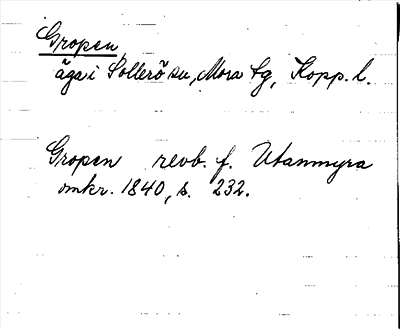 Gropen
äga i Sollerö sn, Mora tg, Kopp. l.
Gropen revb. f. Utanmyra
omkr. 1840, s. 232.